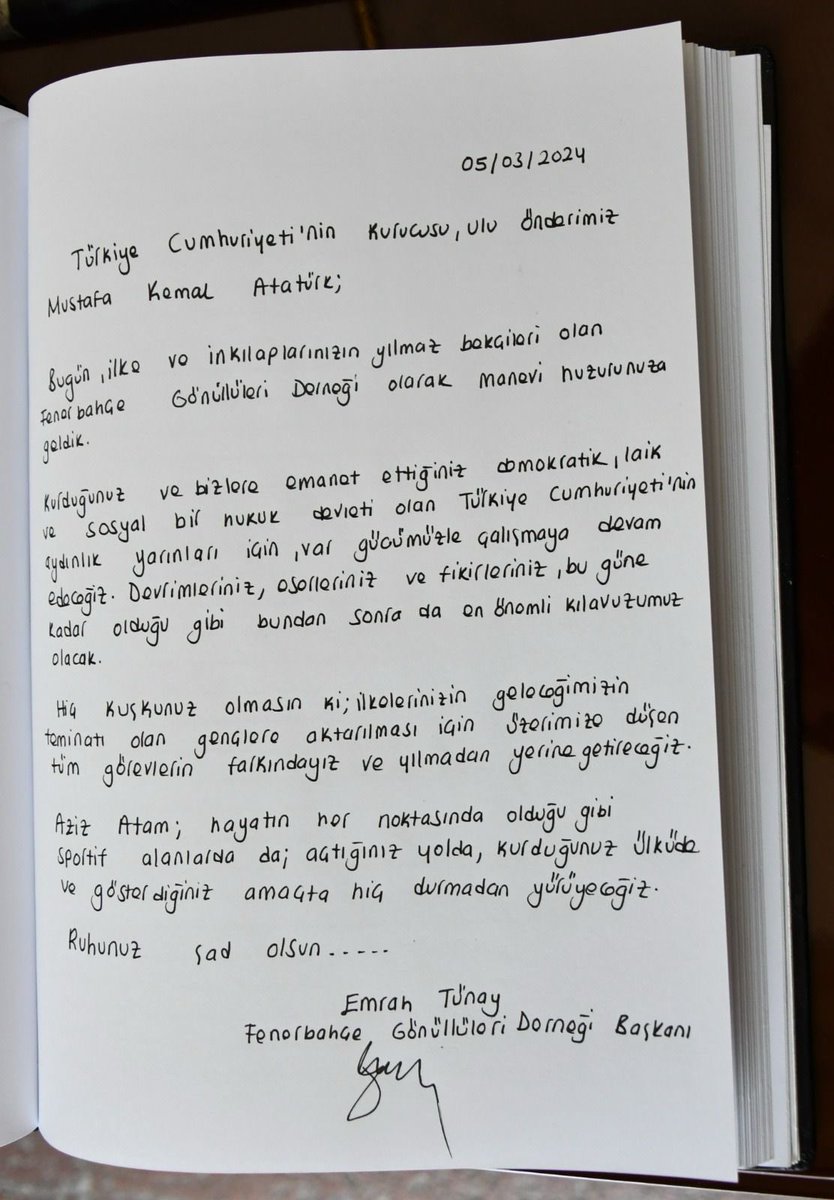 05/03/2024
Türkiye Cumhuriyeti'nin kurucusu, ulu önderimiz
Mustafa Kemal Atatürk;
Bugün, ilke ve inkılaplarınızın yılmaz bekçileri olan
Fenerbahçe Gönüllüleri Derneği olarak manevi huzurunuza
geldik.
Kurduğunuz ve bizlere emanet ettiğiniz demokratik, laik
ve sosyal bir hukuk devleti olan Türkiye Cumhuriyeti'nin
aydınlık yarınları için, var gücümüzle çalışmaya devam
edeceğiz. Devrimleriniz, eserleriniz ve fikirleriniz, bu güne
kadar olduğu gibi bundan sonra da en önemli kılavuzumuz
olacak.
Hiç kuşkunuz olmasın ki; ilkelerinizin geleceğimizin
teminatı olan gençlere aktarılması için üzerimize düşen
tüm görevlerin farkındayız ve yılmadan yerine getireceğiz.
Aziz Atam; hayatın her noktasında olduğu gibi
sportif alanlarda da; açtığınız yolda, kurduğunuz ülküde
ve gösterdiğiniz amaçta hiç durmadan yürüyeceğiz.
Ruhunuz şad olsun.....
Emrah Tünay
Fenerbahçe Gönüllüleri Derneği Başkanı